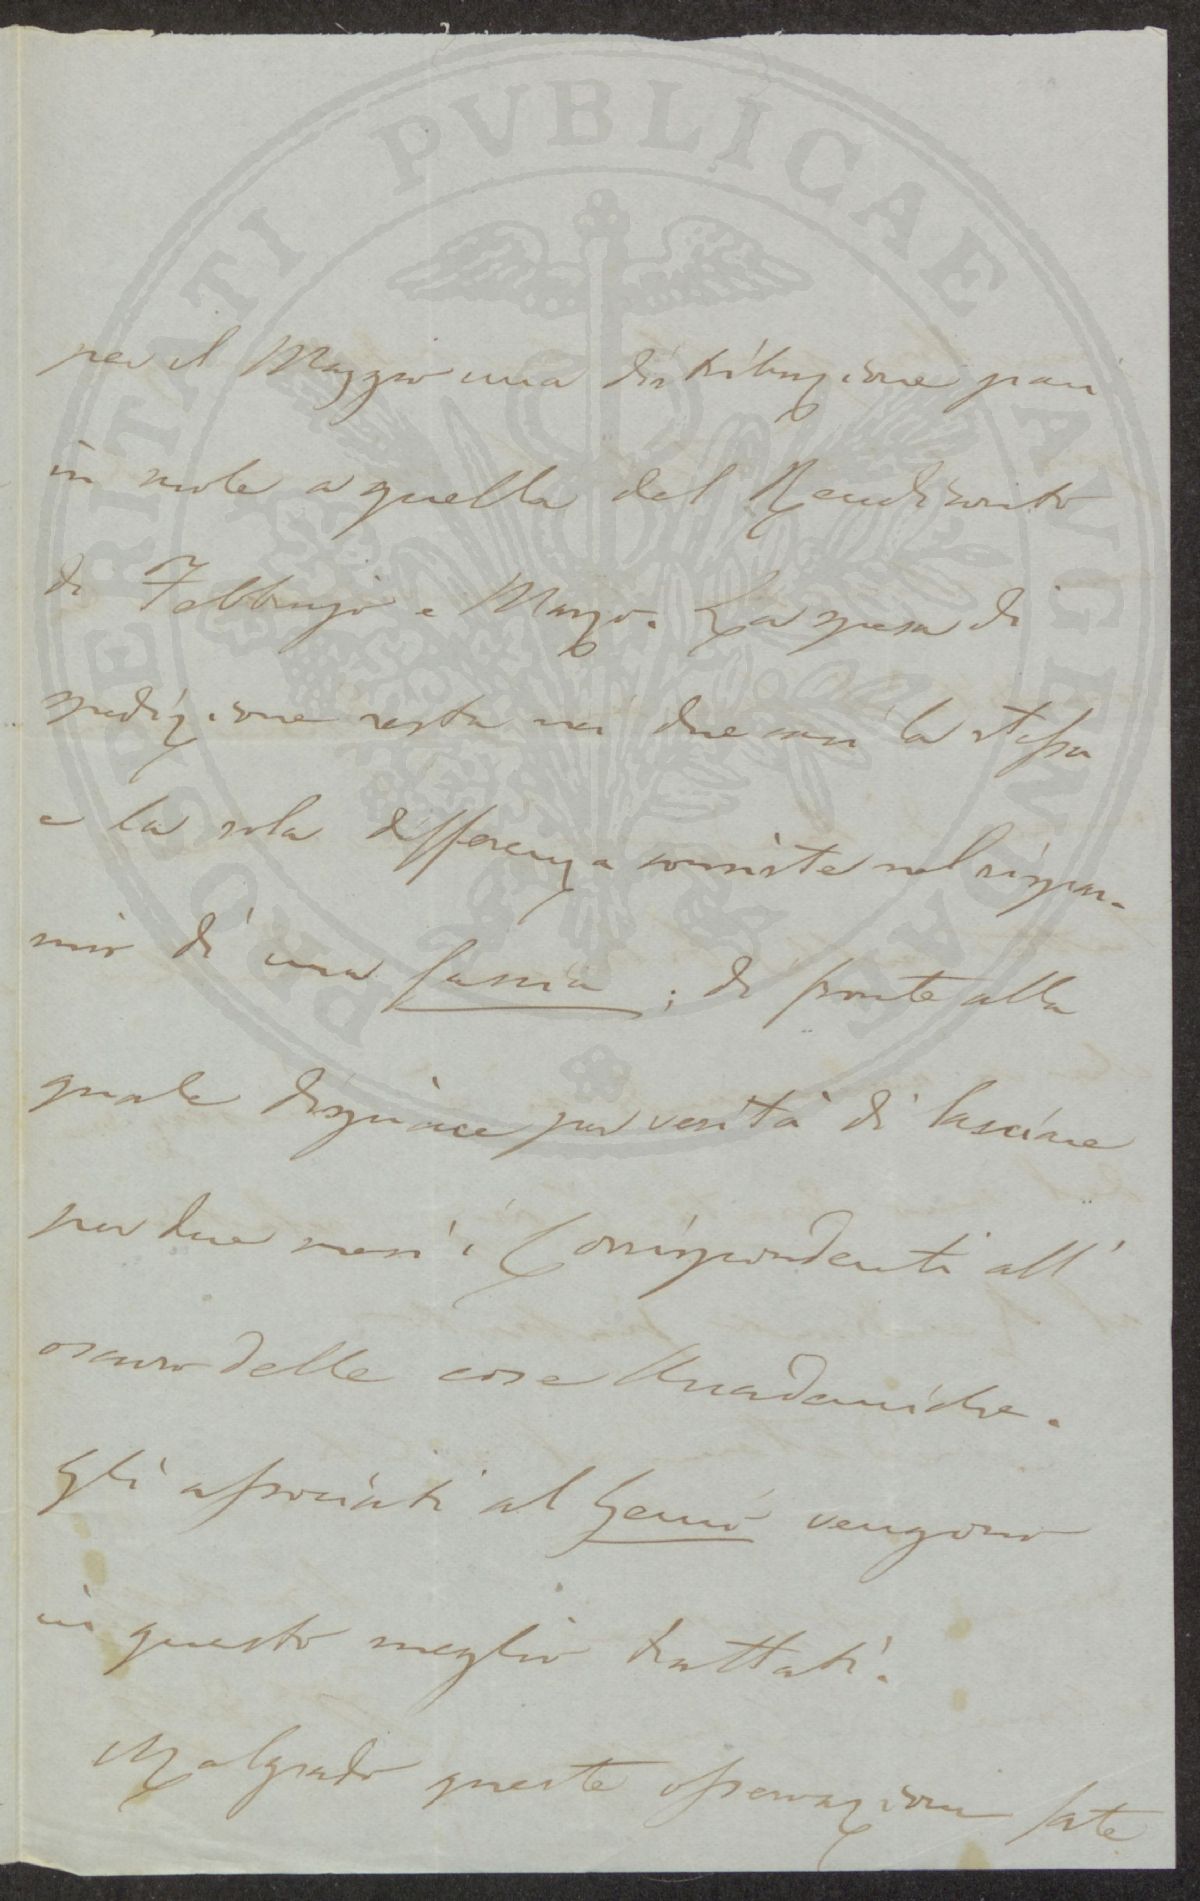 PROSPERITATI PVBLICAE AVGENDAE
per il Maggio una distribuzione pari
in mole a quella del Rendiconto
di Febbrajo e Marzo. La spesa di
spedizione resta nei due casi la stessa
e la sola differenza consiste nel rispar-
mio di una fascia; di fronte alla
quale dispiace per verità di lasciare
per due mesi i Corrispondenti all'
oscuro delle cose Accademiche.
Gli associati al Genio vengono
in questo meglio trattati.
Malgrado queste osservazioni fate